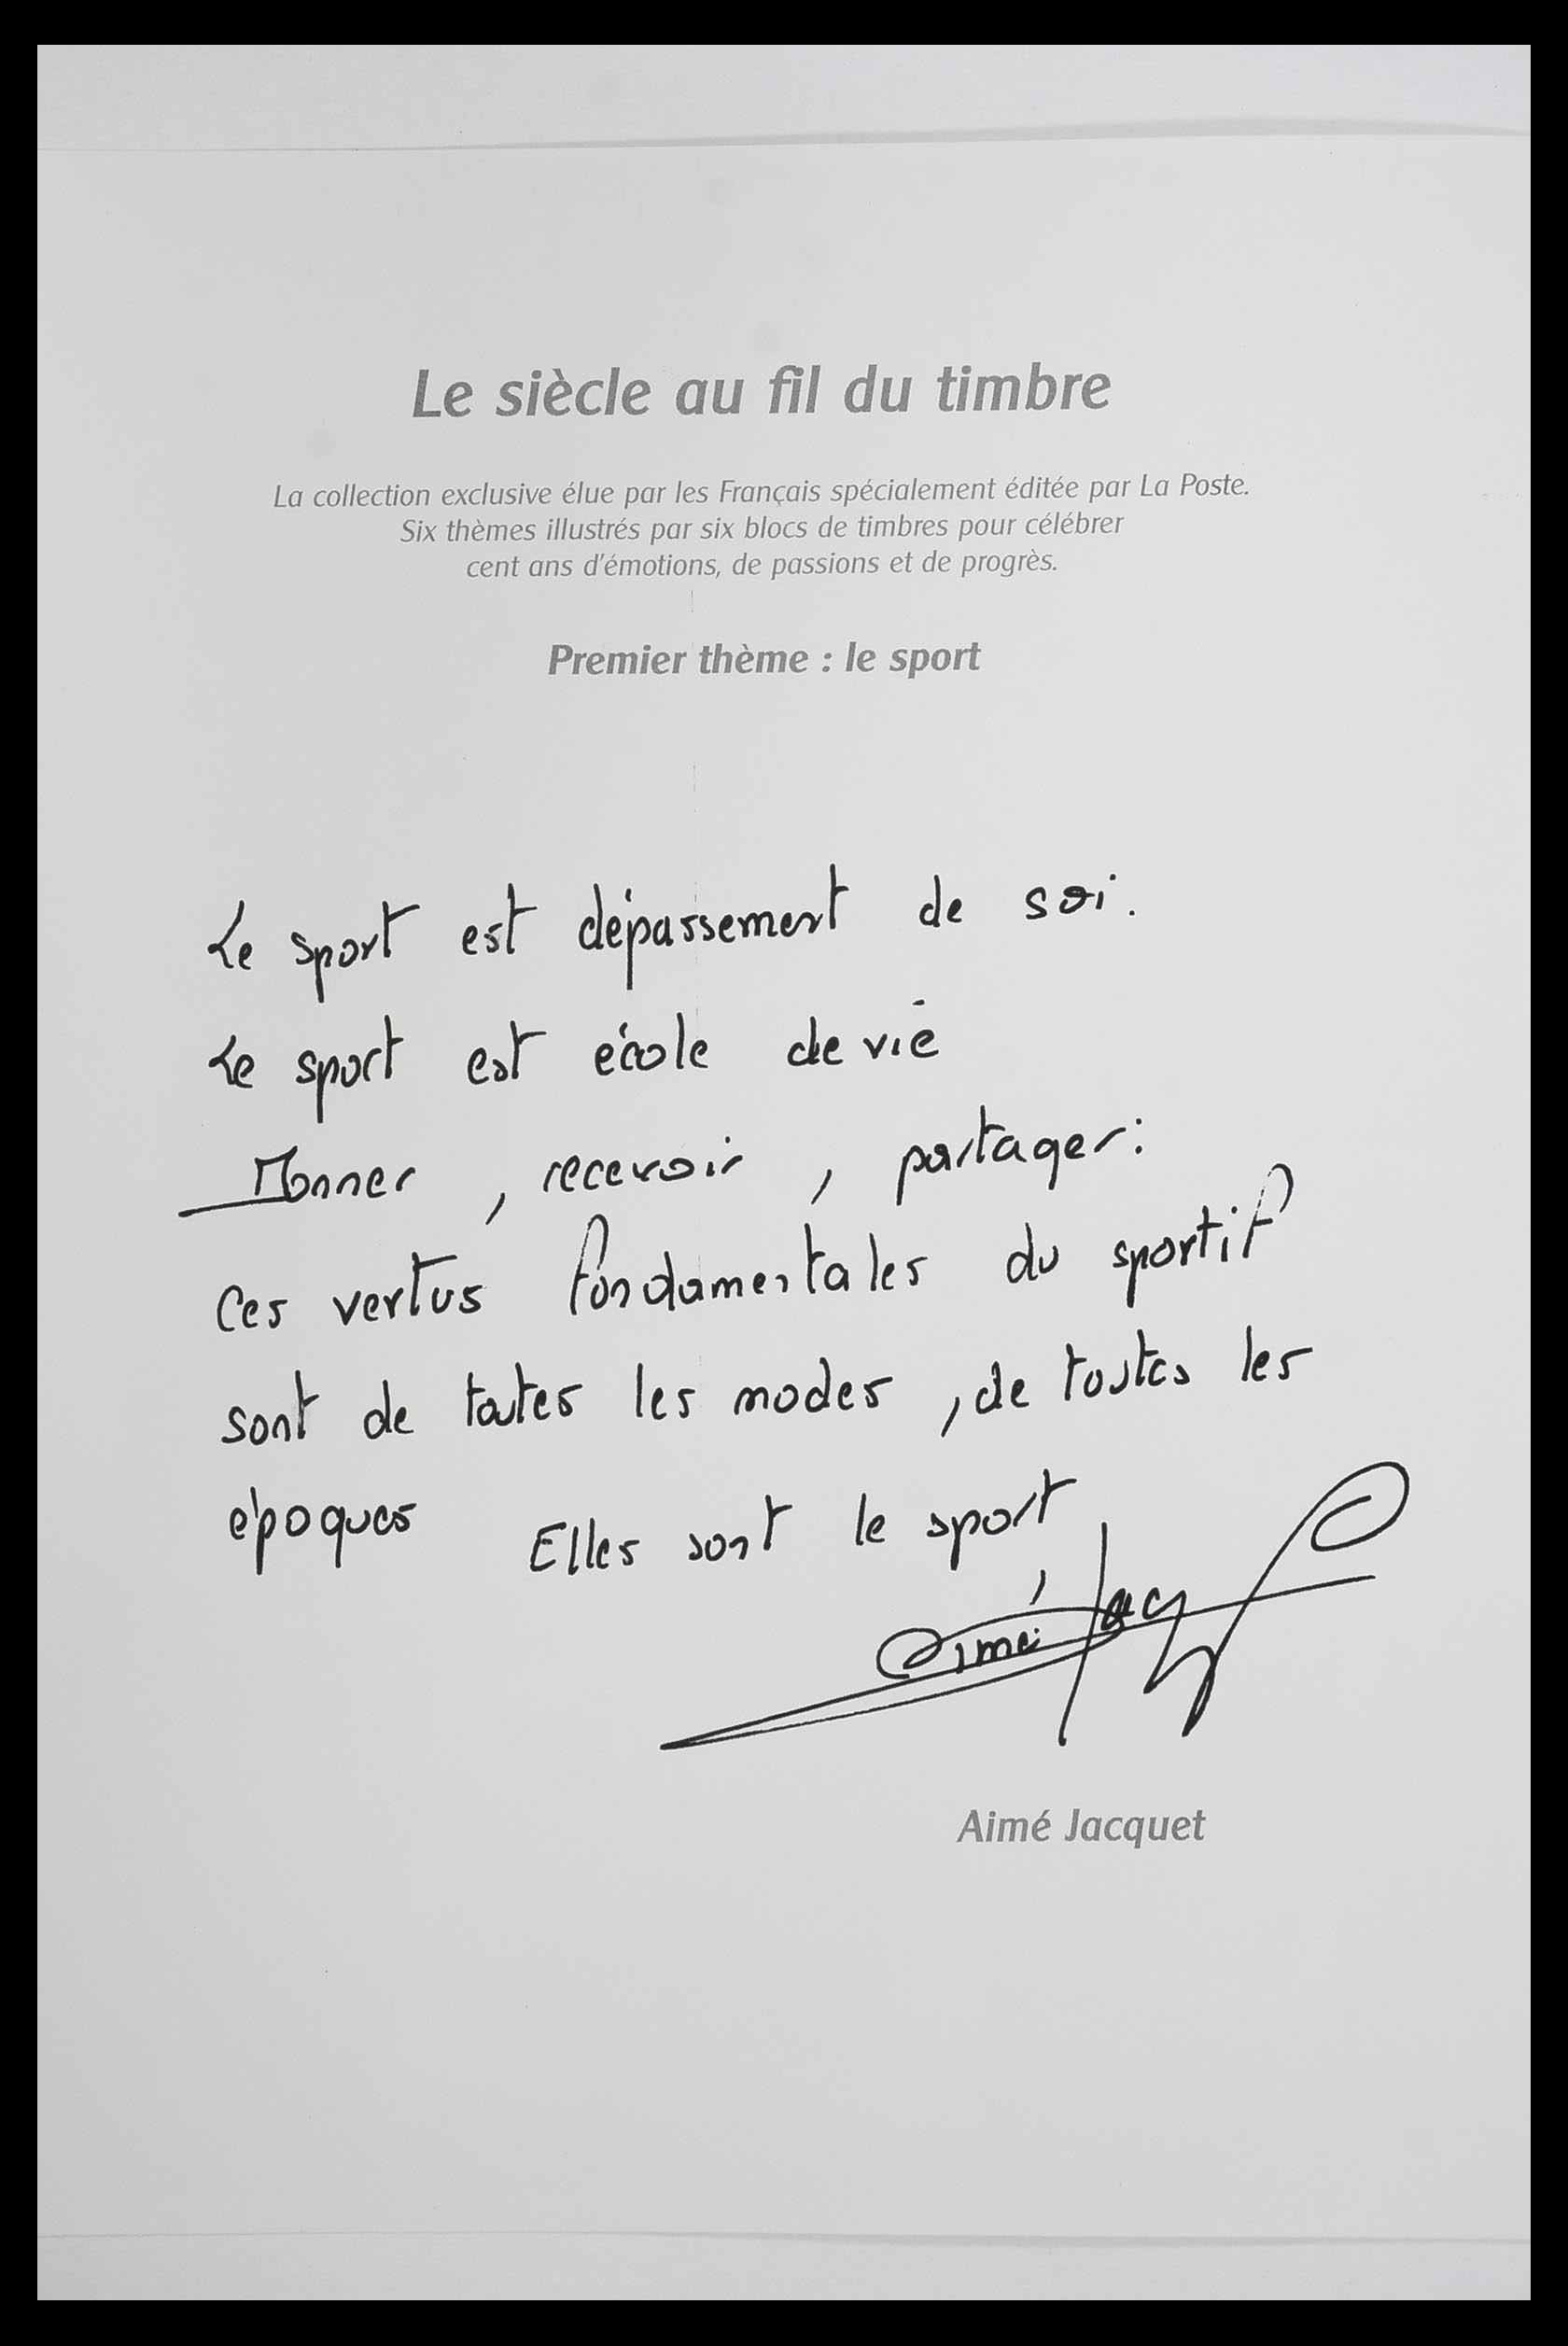 Le siècle au fil du timbre
La collection exclusive élue par les Français spécialement éditée par La Poste.
Six thèmes illustrés par six blocs de timbres pour célébrer
cent ans d'émotions, de passions et de progrès.
Premier thème : le sport
Le sport est dépassement de soi.
Le sport est école de vie
Donner, recevoir, partager :
Ces vertus fondamentales du sportif
sont de toutes les modes, de toutes les
époques Elles sont le sport
Aimé Jacquet
Aimé Jacquet